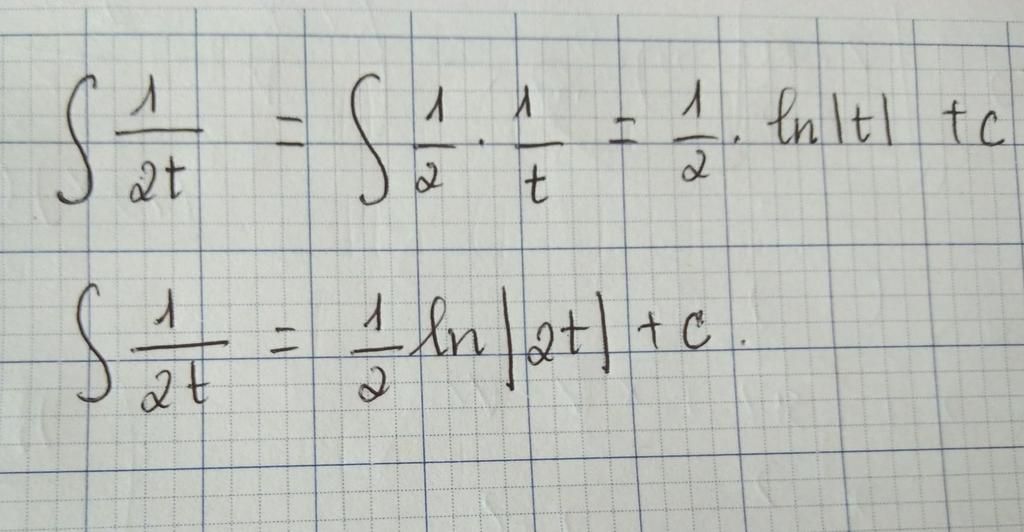 ∫ 1/2t = ∫ 1/2 · 1/t = 1/2 · ln|t| + c
∫ 1/2t = 1/2 ln|2t| + c.